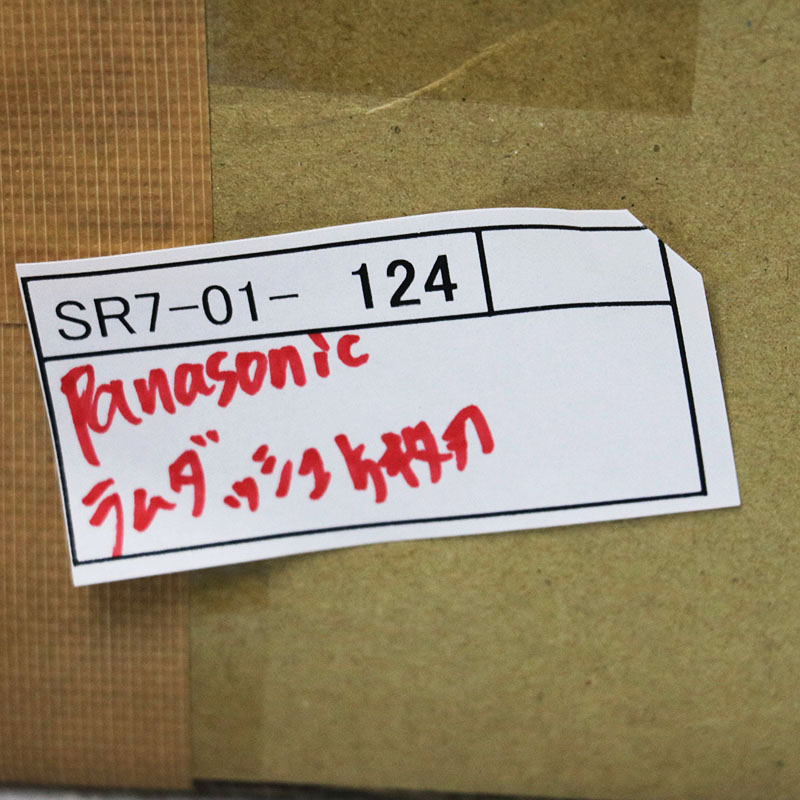 SR7-01- 124
Panasonic
ラムダッシュ